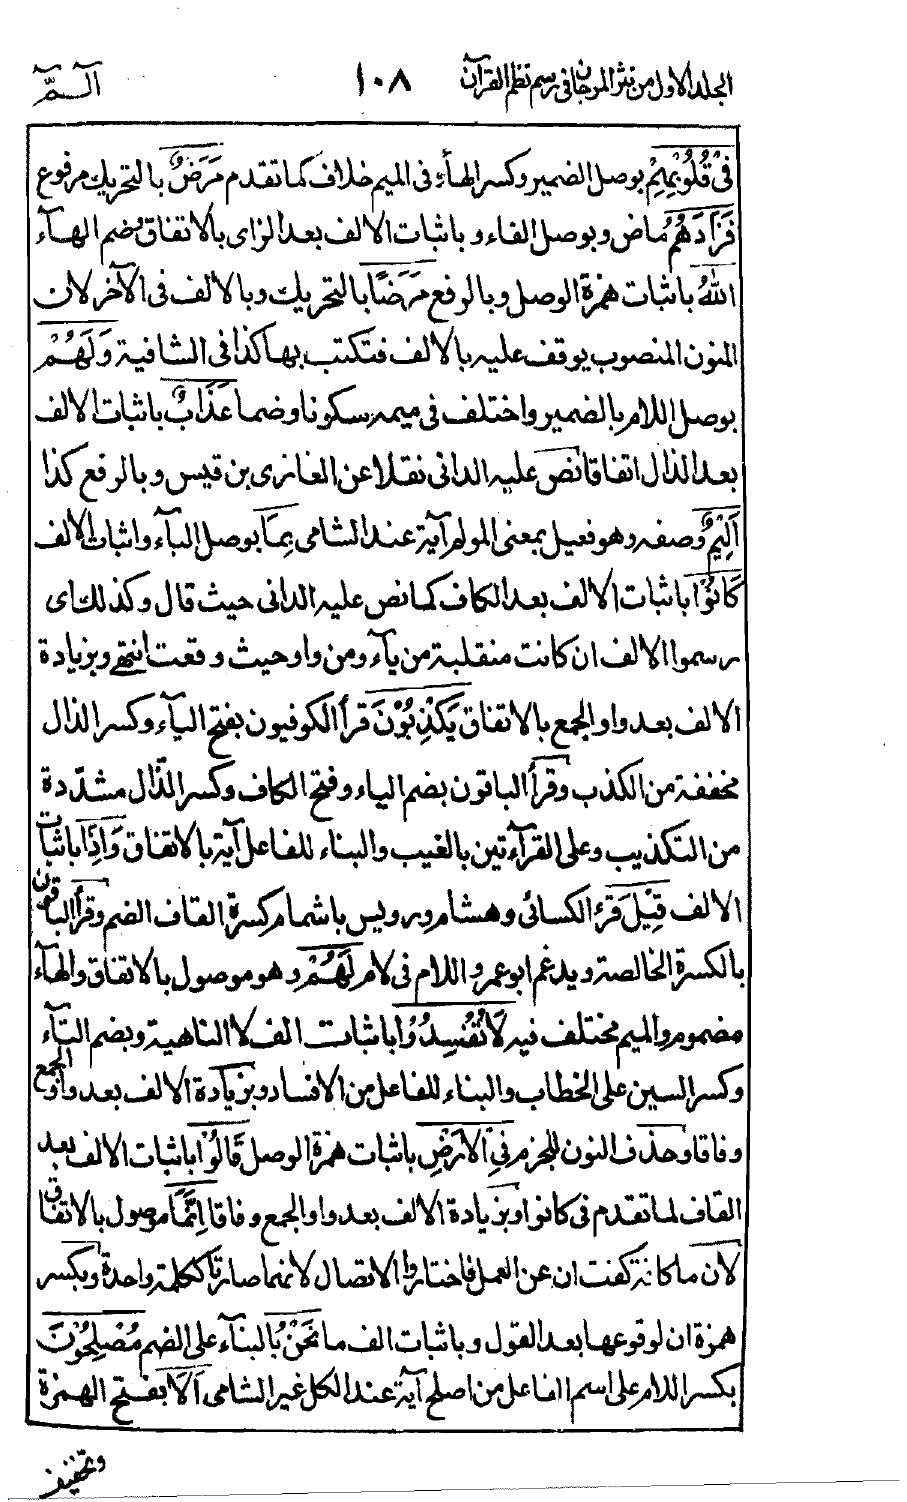 الجلد الاول من نثر المرجان فى رسم نظم القرآن ١٠٨ آلـمّ
فِىْ قُلُوْبِهِمْ بوصل الضمير وكسر الهآء فى الميم خلاف كما تقدم مَرَضٌ بالتحريك مرفوع
فَزَادَهُمُ ماض وبوصل الفاء وباثبات الالف بعد الزاى بالاتفاق وضم الهآء
اللهُ باثبات همزة الوصل وبالرفع مَرَضًا بالتحريك وبالالف فى الآخر لان
المنون المنصوب يوقف عليه بالالف فتكتب بها كذا فى الشافية وَلَهُمْ
بوصل اللام بالضمير واختلف فى ميمه سكونا وضما عَذَابٌ باثبات الالف
بعد الذال اتفاقا نص عليه الدانى نقلا عن الغازى بن قيس وبالرفع كذا
اَلِيْمٌ وصفه وهو فعيل بمعنى المولم آية عند الشامى بِمَا بوصل البآء واثبات الالف
كَانُوْا باثبات الالف بعد الكاف كما نص عليه الدانى حيث قال وكذلك اى
رسموا الالف ان كانت منقلبة من يآء ومن واو حيث وقعت انتهى وبزيادة
الالف بعد واو الجمع بالاتفاق يَكْذِبُوْنَ قرأ الكوفيون بفتح اليآء وكسر الذال
مخففة من الكذب وقرأ الباقون بضم الياء وفتح الكاف وكسر الذّال مشدّدة
من التكذيب وعلى القرآءتين بالغيب والبناء للفاعل آية بالاتفاق وَاِذَا باثبات
الالف قِيْلَ قرء الكسائى وهشام ورويس باشمام كسرة القاف الضم وقرأ الباقون
بالكسرة الخالصة ويدغم ابو عمرو اللام فى لام لَهُمْ وهو موصول بالاتفاق والهآء
مضموم والميم مختلف فيه لَا تُفْسِدُوْا باثبات الف لا الناهية وبضم التآء
وكسر السين على الخطاب والبناء للفاعل من الافساد وبزيادة الالف بعد واو الجمع
وفاقا وحذف النون للجزم فِى الْاَرْضِ باثبات همزة الوصل قَالُوْا باثبات الالف بعد
القاف لما تقدم فى كانوا وبزيادة الالف بعد واو الجمع وفاقا اِنَّمَا موصول بالاتفاق
لان ما كافة كفت ان عن العمل فاختاروا الاتصال لانهما صارتا ككلمة واحدة وبكسر
همزة ان لوقوعها بعد القول وباثبات الف ما نَحْنُ بالبنآء على الضم مُصْلِحُوْنَ
بكسر اللام على اسم الفاعل من اصلح آية عند الكل غير الشامى اَلَا بفتح الهمزة
وتخفيف